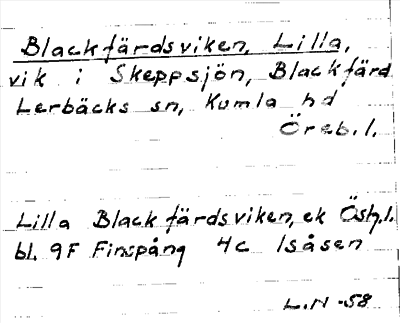 Blackfärdsviken, Lilla,
vik i Skeppsjön, Blackfärd
Lerbäcks sn, Kumla hd
Öreb.l.
Lilla Blackfärdsviken, ek Östg.l.
bl. 9F Finspång 4c Isåsen
L.N -58